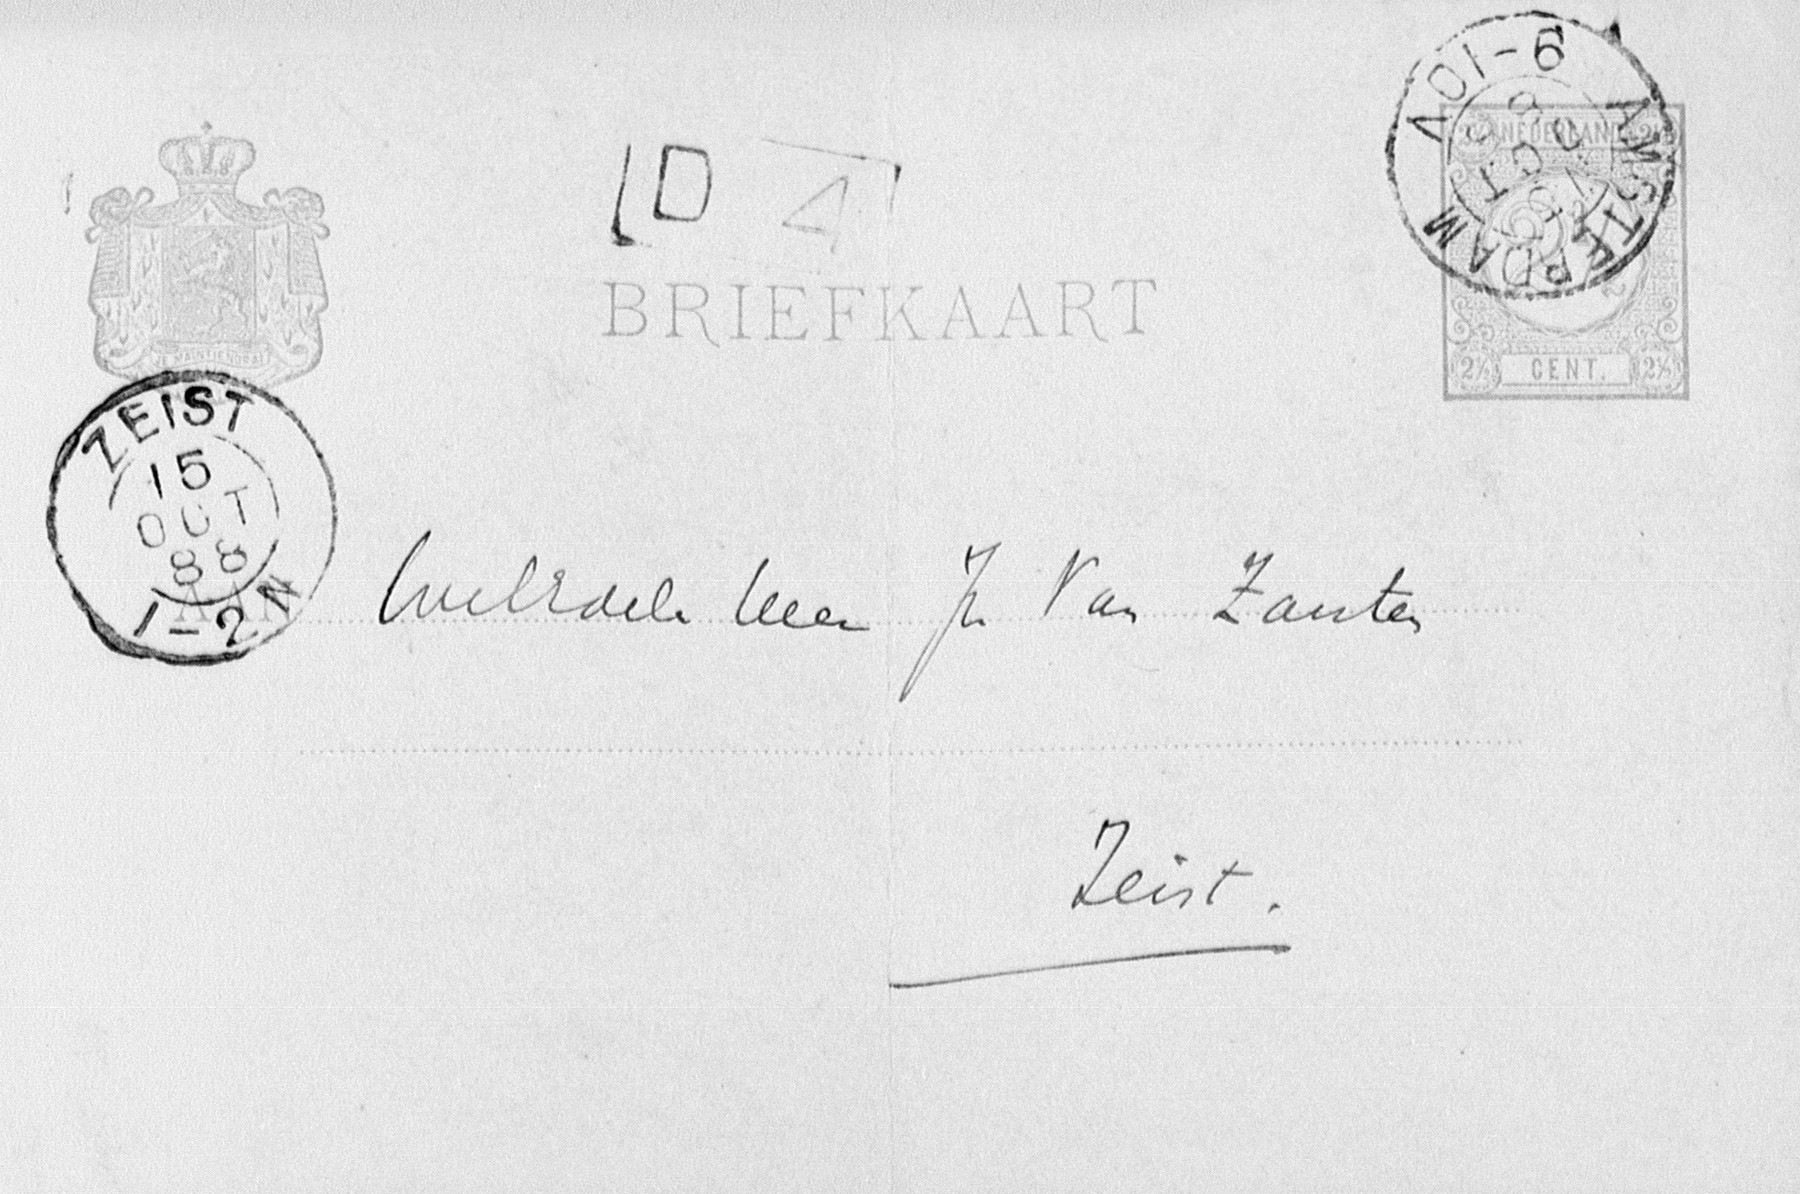 AMSTERDAM
9-10V
OCT
NEDERLAND
2½ CENT. 2½
D 4
JE MAINTIENDRAI
BRIEFKAART
ZEIST
15
OCT
88
1-2N
AAN WelEdele Heer J. Van Zanten
Zeist.